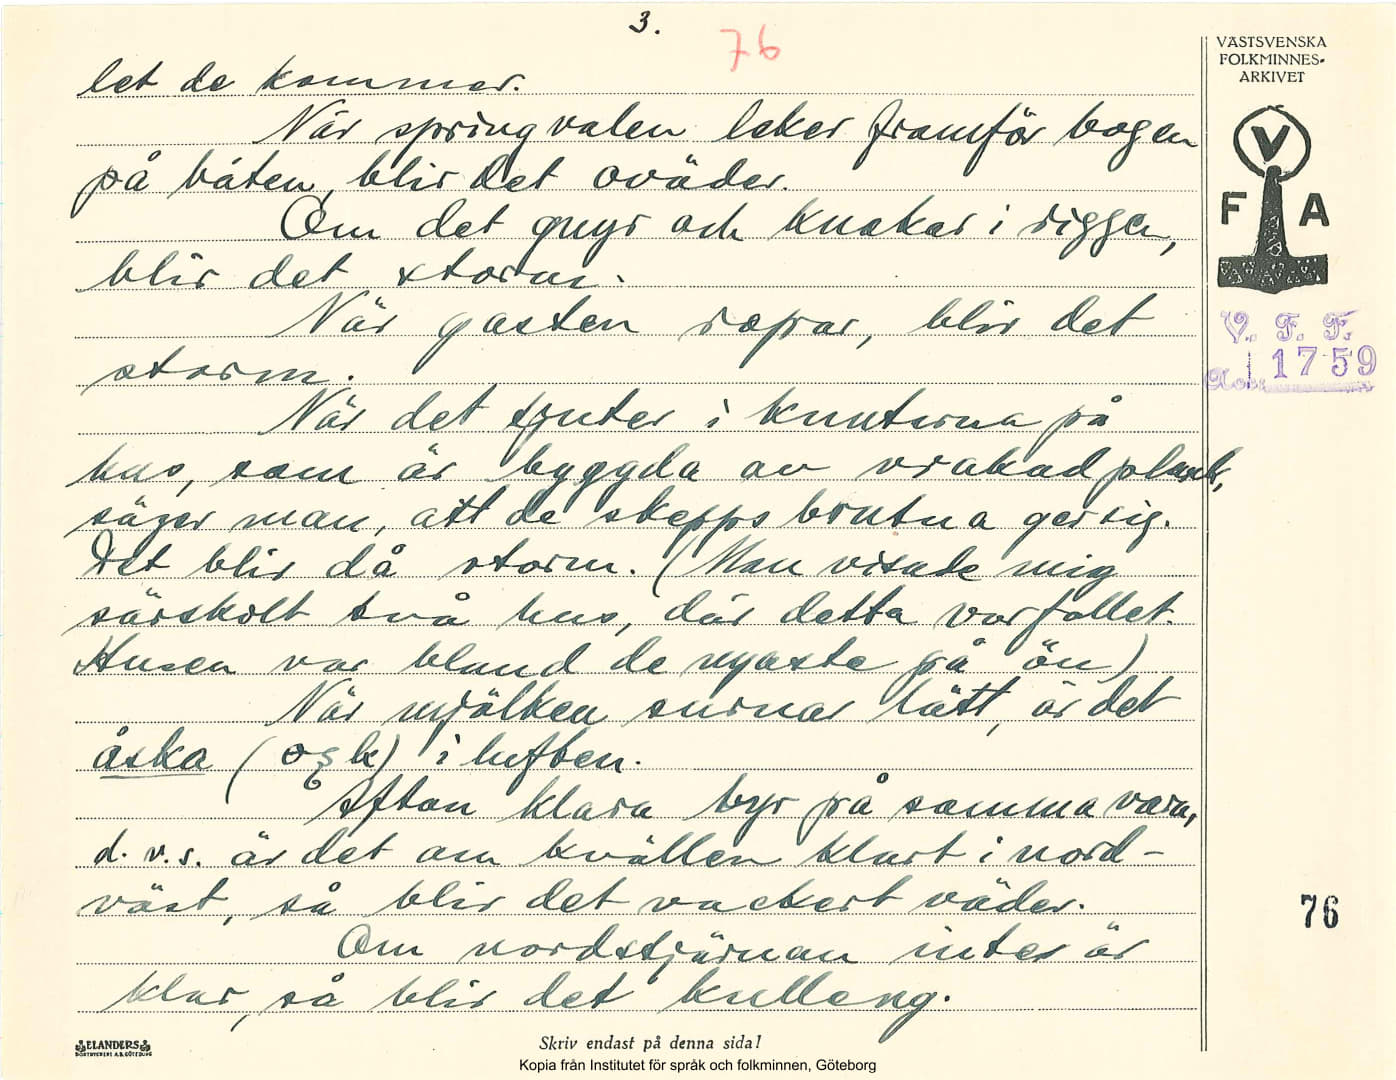 3.
76
let de kommer.
När springvalen leker framför bogen
på båten, blir det oväder.
Om det gnyr och knakar i riggen,
blir det storm.
När gasten ropar, blir det
storm.
När det tjuter i knutarna på
hus, som är byggda av vrakad plank,
säger man, att de skeppsbrutna ger sig.
Det blir då storm. (Man visade mig
särskilt två hus, där detta var fallet.
Husen var bland de nyaste på ön)
När mjölken surnar lätt, är det
åska (      ) i luften.
Afton klara byr på samma vara,
d.v.s. är det om kvällen klart i nord-
väst, så blir det vackert väder.
Om nordstjärnan inter är
klar, så blir det kulleng.
VÄSTSVENSKA
FOLKMINNES-
ARKIVET
V
F A
V. F. F.
Acc: 1759
76
ELANDERS
BOKTRYCKERI A.B. GÖTEBORG
Skriv endast på denna sida!
Kopia från Institutet för språk och folkminnen, Göteborg